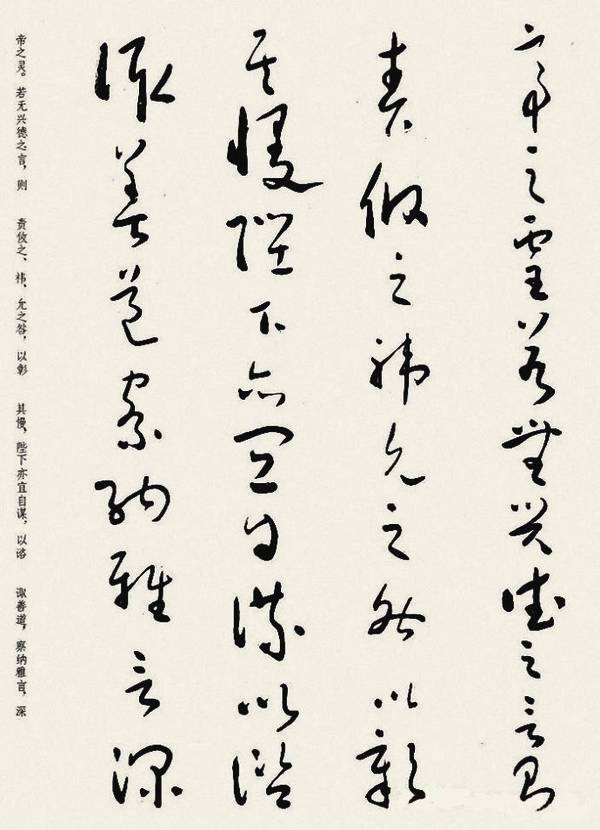 帝之靈若無興德之言則
責攸之禕允之咎以彰
其慢陛下亦宜自謀以諮
諏善道察納雅言深
帝之灵。若无兴德之言，则
责攸之、祎、允之咎，以彰
其慢，陛下亦宜自谋，以谘
诹善道，察纳雅言，深